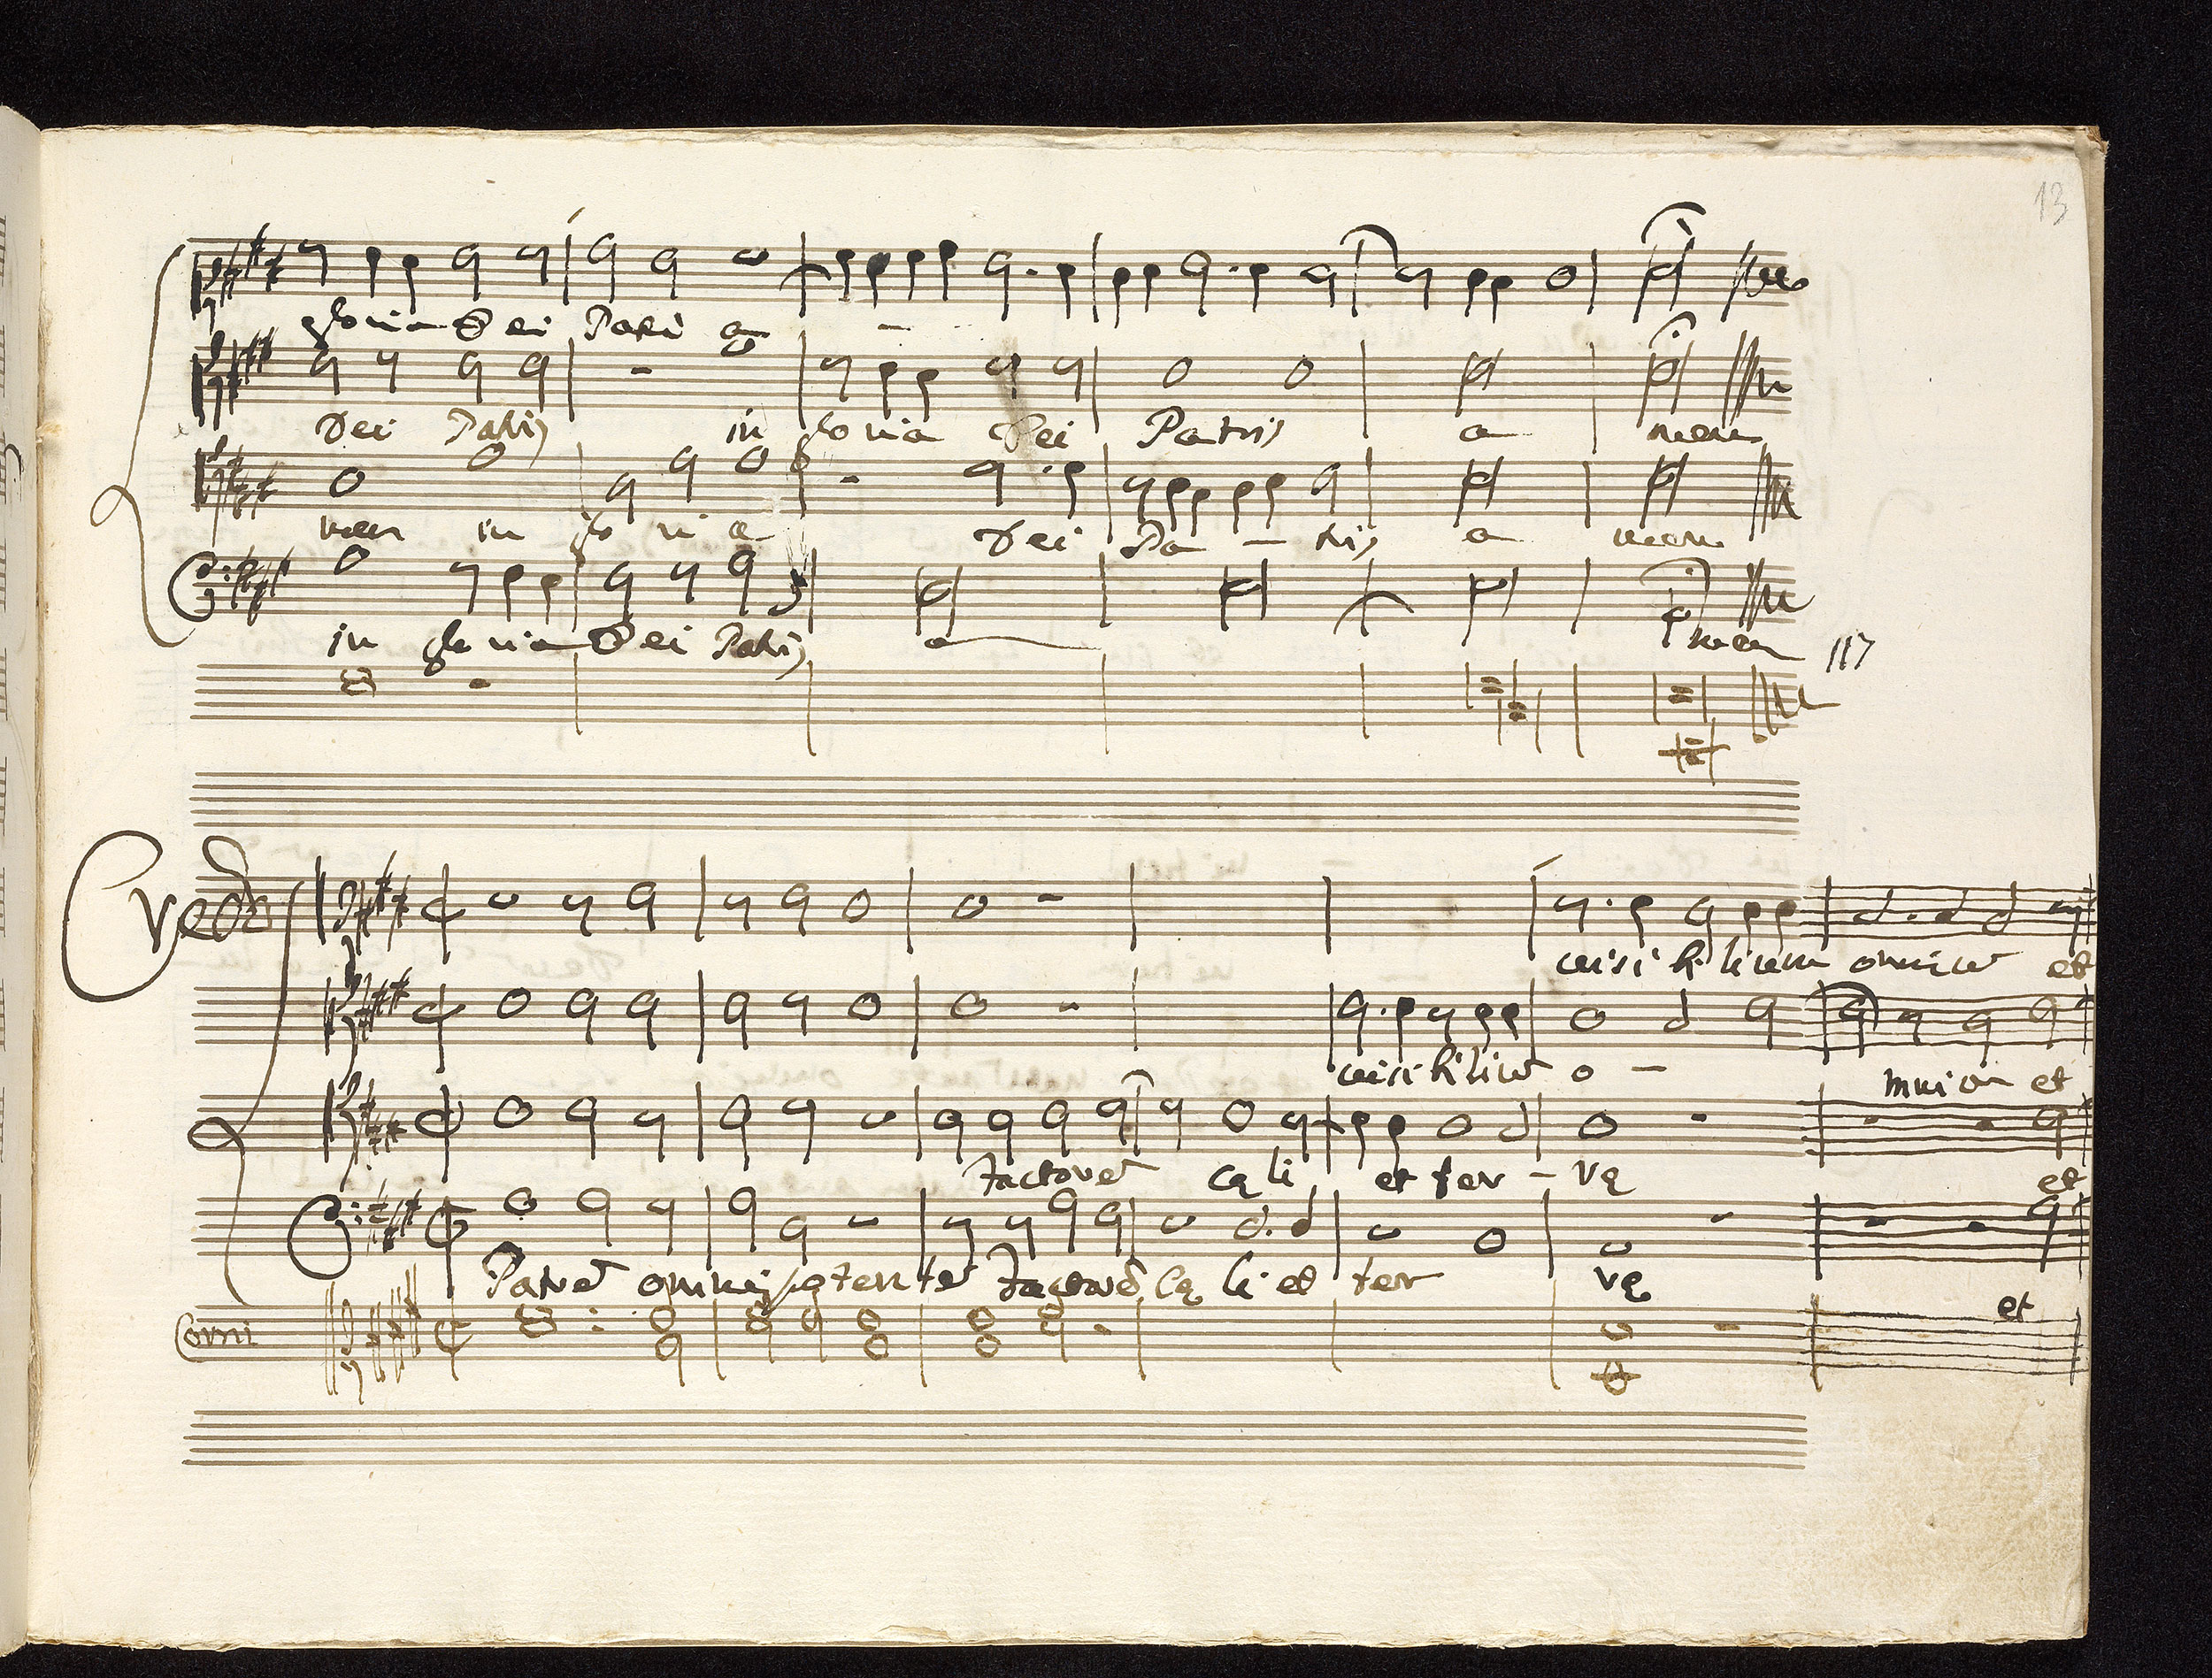 13
gloria Dei Patris a -
Dei Patris in gloria Dei Patris a men
men in glo ri a Dei Pa - tris a men
in gloria Dei Patris a men
117
Credo
visibilium omniũ et
visibiliũ o - mnium et
factorẽ cęli et ter - rę et
Patrẽ omnipotentẽ factorẽ cęli et ter rę et
Corni